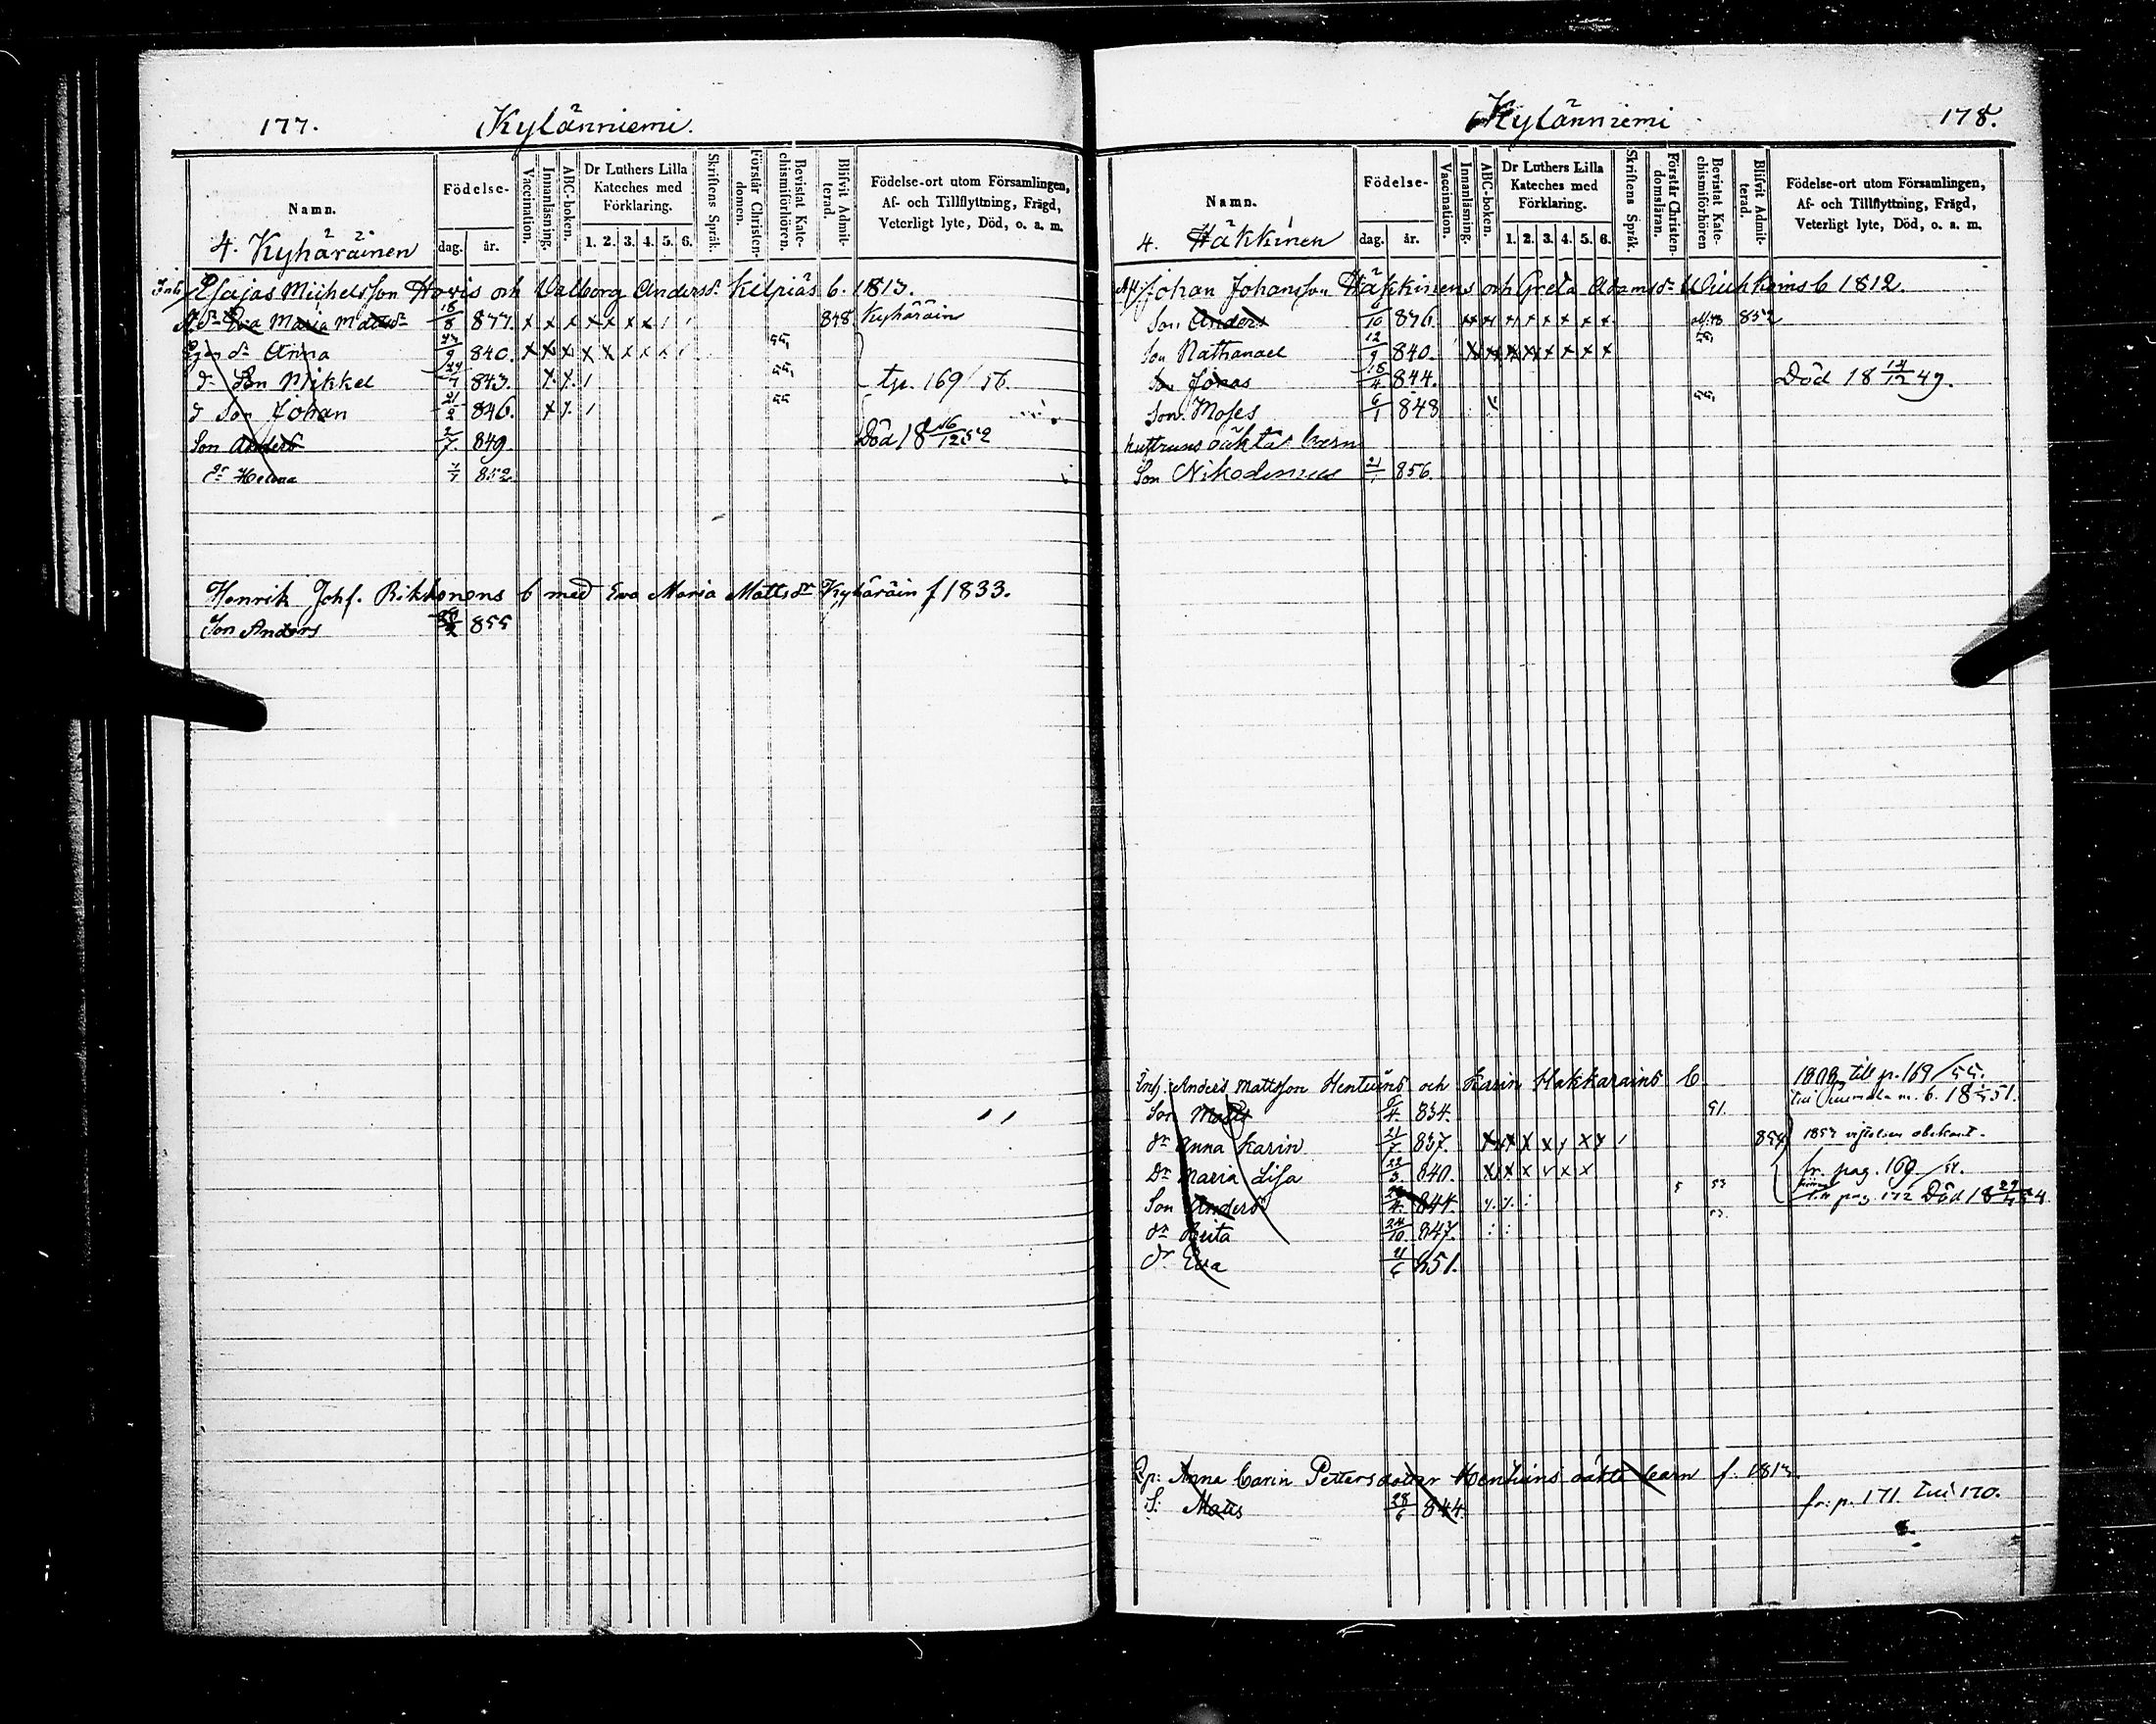 177. Kylänniemi.
Namn.
Födelse-
dag. år.
Vaccination.
Innanläsning.
ABC-boken.
Dr Luthers Lilla Kateches med Förklaring.
1. 2. 3. 4. 5. 6.
Skriftens Språk.
Förstår Christendomen.
Bevistat Katechismiförhören.
Blifvit Admitterad.
Födelse-ort utom Församlingen,
Af- och Tillflyttning, Frägd,
Veterligt lyte, Död, o. a. m.
4. Kyhäräinen
Esajas Michelsson Hovis och Valborg Andersdr Kilpiäs b. 1813.
dr Eva Maria Mattsdr 18/8 877. x x x x x x x 1 1 848 Kyhäräin
dr Anna 840. x x x x x x x x 1 55
Son Mikkel 29/7 843. x x 1 55 tp. 169/56.
d Son Johan 21/2 846. x x 1 55
Son Anders 2/7 849. Död 18 16/12 52
dr Helena 852
Henrik Johs. Rikkonens b med Eva Maria Mattsdr Kyhäräin f 1833.
Son Anders 855
Kylänniemi 178.
Namn.
Födelse-
dag. år.
Vaccination.
Innanläsning.
ABC-boken.
Dr Luthers Lilla Kateches med Förklaring.
1. 2. 3. 4. 5. 6.
Skriftens Språk.
Förstår Christendomsläran.
Bevistat Katechismiförhören
Blifvit Admitterad.
Födelse-ort utom Församlingen,
Af- och Tillflyttning, Frägd,
Veterligt lyte, Död, o. a. m.
4. Häkkinen
Johan Johansson Häkkinens och Greta Adamsdr b 1812.
Son Anders 6/10 836. x x x x x x x x 852
Son Nathanael 12/9 840. x x x x x x x x 55
Son Jonas 18/4 844. Död 18 14/12 49.
Son Moses 6/1 848 55
hustruns oäkta barn
Son Nikodemus 21/1 856.
Inh: Anders Mattsson Hentuins och Karin Hakkarains b 1808, till p. 169/55.
Son Matts 6/4 834. 51. m. b. 1851.
dr Anna Karin 21/7 837. x x x x x x x 1 854
Dr Maria Lisa 22/3 840. x x x x x x fr. pag. 169/54.
Son Anders 844. till pag. 172 Död 18 29/ 54
dr Brita 24/10 847.
dr Eva 11/6 851.
Anna Carin Pettersdotter Hentuins oäkta barn f. 181
S: Matts 28/6 844. fr: p. 171. till 170.